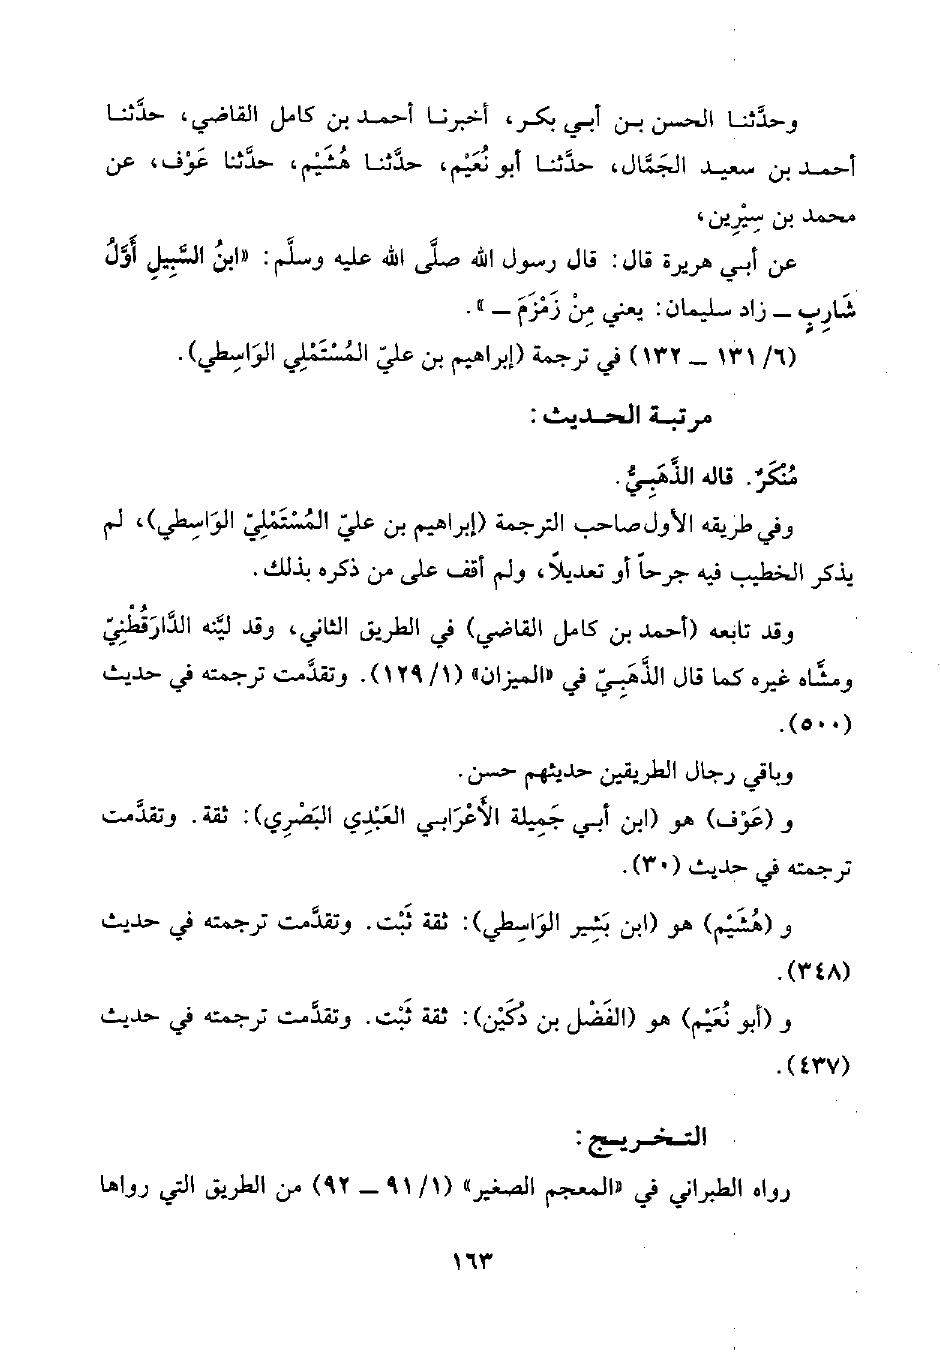 وحدَّثنا الحسن بن أبي بكر، أخبرنا أحمد بن كامل القاضي، حدَّثنا
أحمد بن سعيد الجَمَّال، حدَّثنا أبو نُعَيْم، حدَّثنا هُشَيْم، حدَّثنا عَوْف، عن
محمد بن سِيْرِين،
عن أبي هريرة قال: قال رسول الله صلَّى الله عليه وسلَّم: «ابنُ السَّبِيلِ أَوَّلُ
شَارِبٍ ــ زاد سليمان: يعني مِنْ زَمْزَمَ ــ».
(٦/ ١٣١ ــ ١٣٢) في ترجمة (إبراهيم بن عليّ المُسْتَمْلِي الوَاسِطي).
مرتبة الحديث:
مُنْكَرٌ. قاله الذَّهَبِيُّ.
وفي طريقه الأول صاحب الترجمة (إبراهيم بن عليّ المُسْتَمْلِيّ الوَاسِطي)، لم
يذكر الخطيب فيه جرحاً أو تعديلاً، ولم أقف على من ذكره بذلك.
وقد تابعه (أحمد بن كامل القاضي) في الطريق الثاني، وقد ليَّنه الدَّارَقُطْنِيّ
ومشَّاه غيره كما قال الذَّهَبِيّ في «الميزان» (١/ ١٢٩). وتقدَّمت ترجمته في حديث
(٥٠٠).
وباقي رجال الطريقين حديثهم حسن.
و (عَوْف) هو (ابن أبي جَمِيلة الأَعْرَابي العَبْدِي البَصْرِي): ثقة. وتقدَّمت
ترجمته في حديث (٣٠).
و (هُشَيْم) هو (ابن بَشِير الوَاسِطي): ثقة ثَبْت. وتقدَّمت ترجمته في حديث
(٣٤٨).
و (أبو نُعَيْم) هو (الفَضْل بن دُكَيْن): ثقة ثَبْت. وتقدَّمت ترجمته في حديث
(٤٣٧).
التخريج:
رواه الطبراني في «المعجم الصغير» (١/ ٩١ ــ ٩٢) من الطريق التي رواها
١٦٣